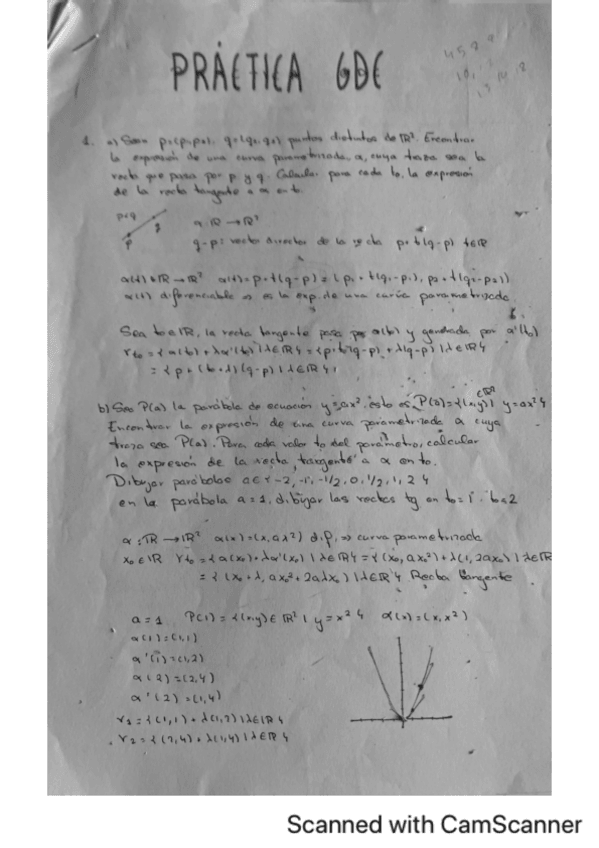 PRÁCTICA GDC
1. a) Sean p=(p₁,p₂), q=(q₁,q₂) puntos distintos de ℝ². Encontrar
la expresión de una curva parametrizada, α, cuya traza sea la
recta que pasa por p y q. Calcular para cada t₀, la expresión
de la recta tangente a α en t₀.
p≠q
α: ℝ → ℝ²
q-p: vector director de la recta p+t(q-p) t∈ℝ
α(t): ℝ → ℝ² α(t)=p+t(q-p)=(p₁+t(q₁-p₁), p₂+t(q₂-p₂))
α(t) diferenciable ⇒ es la exp. de una curva parametrizada.
Sea t₀∈ℝ, la recta tangente pasa por α(t₀) y generada por α'(t₀)
r_t₀ = {α(t₀)+λα'(t₀) | λ∈ℝ} = {p+t₀(q-p)+λ(q-p) | λ∈ℝ}
= {p+(t₀+λ)(q-p) | λ∈ℝ}
b) Sea P(a) la parábola de ecuación y=ax². esto es, P(a)={(x,y)∈ℝ² | y=ax²}
Encontrar la expresión de una curva parametrizada α cuya
traza sea P(a). Para cada valor t₀ del parámetro, calcular
la expresión de la recta tangente a α en t₀.
Dibujar parábolas a∈{-2, -1, -1/2, 0, 1/2, 1, 2}
en la parábola a=1, dibujar las rectas tg en t₀=1 t₀=2
α: ℝ → ℝ² α(x)=(x, ax²) dif. ⇒ curva parametrizada
x₀∈ℝ r_t₀ = {α(x₀)+λα'(x₀) | λ∈ℝ} = {(x₀, ax₀²)+λ(1, 2ax₀) | λ∈ℝ
= {(x₀+λ, ax₀²+2aλx₀) | λ∈ℝ} Recta tangente
a=1 P(1)={(x,y)∈ℝ² | y=x²} α(x)=(x, x²)
α(1)=(1,1)
α'(1)=(1,2)
α(2)=(2,4)
α'(2)=(1,4)
r₁={(1,1)+λ(1,2) | λ∈ℝ}
r₂={(2,4)+λ(1,4) | λ∈ℝ}
Scanned with CamScanner